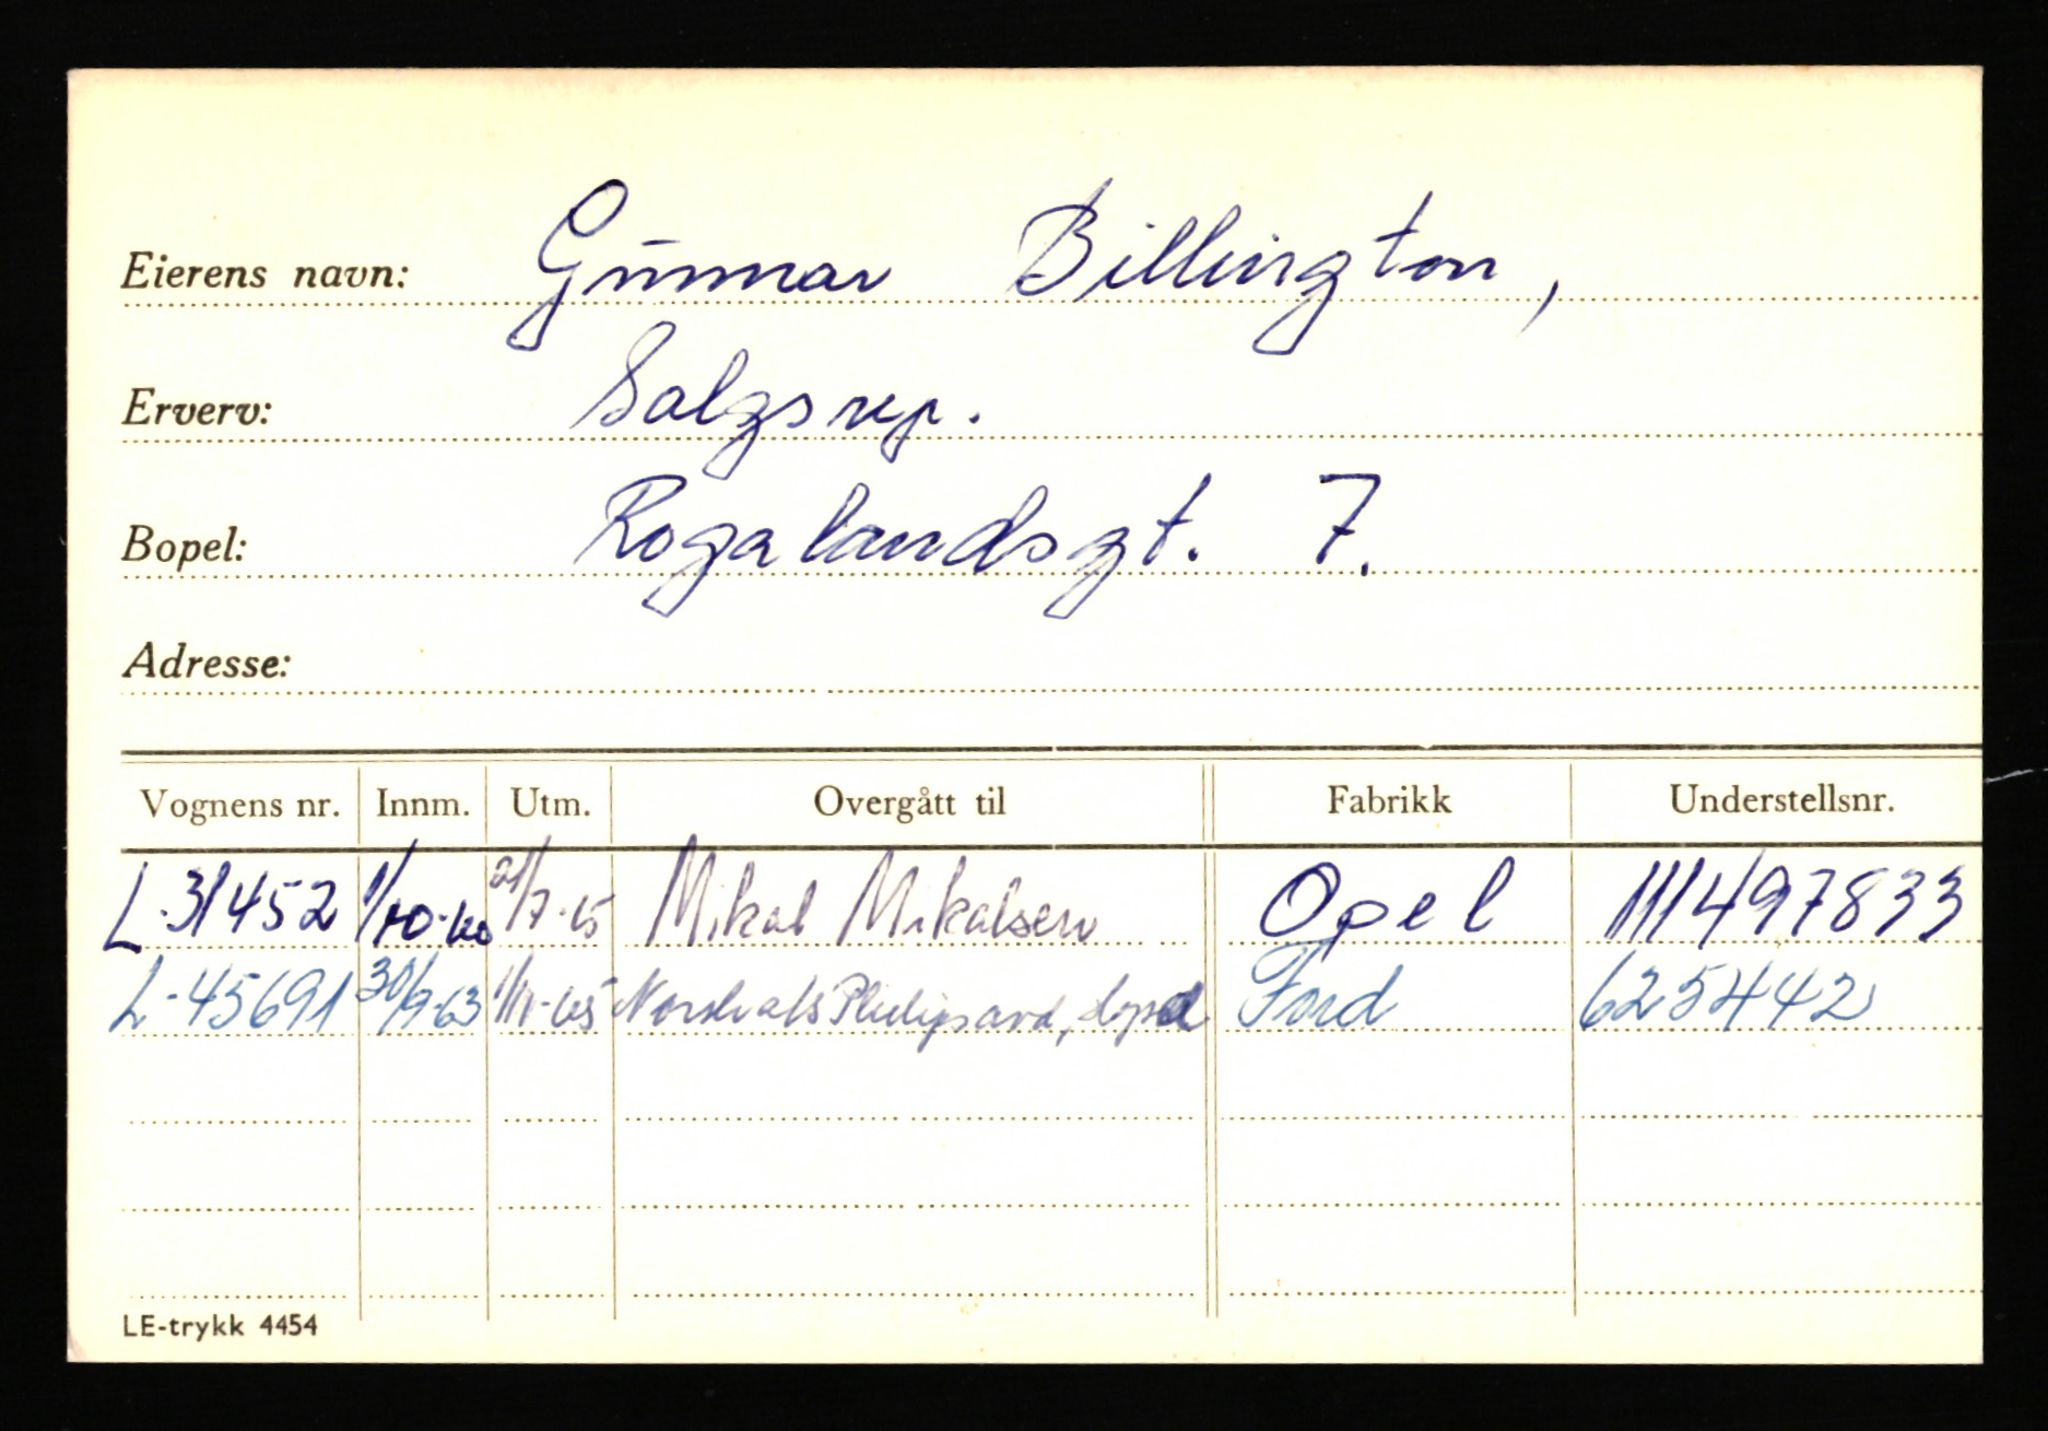 Eierens navn: Gunnar Billington,
Erverv: Salgsrep.
Bopel: Rogalandsgt. 7.
Adresse:
Vognens nr. Innm. Utm. Overgått til Fabrikk Understellsnr.
L-31452 1/10-60 21/7-65 Mikal Mikalsen Opel 111497833
L-45691 30/9-63 1/11-65 Ford 625442
LE-trykk 4454